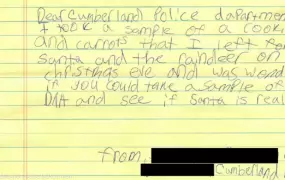 Dear Cumberland Police dapartmen
I took a sample of a cooki
and carrots that I left for
Santa and the raindeer on
christmas eve and was wond
if you could take a sample of
DNA and see if Santa is real
from,
Cumberland